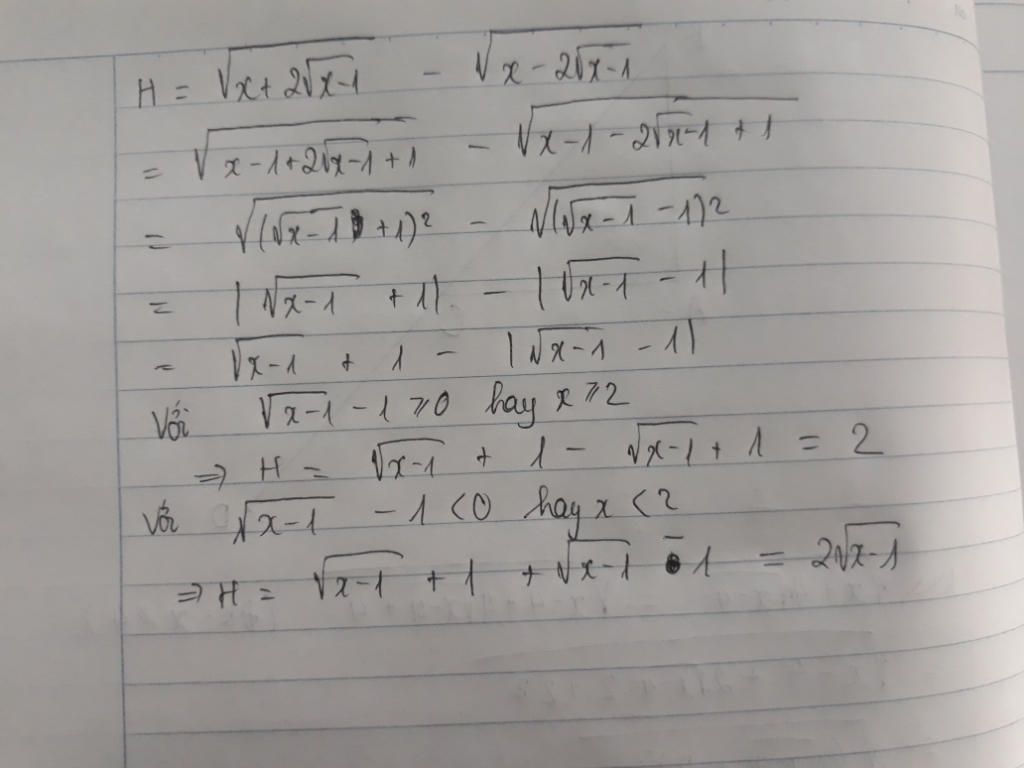 H = √(x + 2√(x-1)) - √(x - 2√(x-1))
= √(x-1+2√(x-1)+1) - √(x-1-2√(x-1)+1)
= √((√(x-1) +1)²) - √((√(x-1) -1)²)
= |√(x-1) + 1| - |√(x-1) - 1|
= √(x-1) + 1 - |√(x-1) - 1|
Với √(x-1) - 1 ⩾ 0 hay x ⩾ 2
⇒ H = √(x-1) + 1 - √(x-1) + 1 = 2
Với √(x-1) - 1 < 0 hay x < 2
⇒ H = √(x-1) + 1 + √(x-1) - 1 = 2√(x-1)